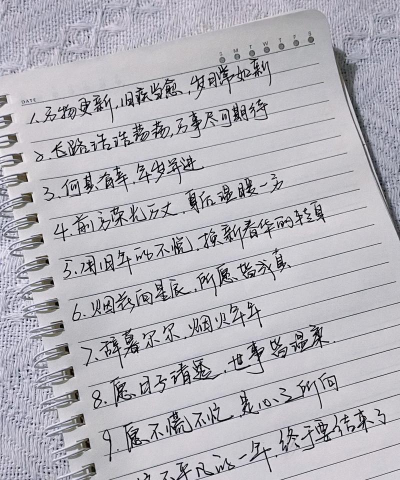 DATE S M T W T F S
1、万物更新,旧疾当愈,岁月常如新
2、长路浩浩荡荡,万事尽可期待
3、何其有幸,年岁并进
4、前方荣光万丈,身后温暖一方
5、用旧年的不慌,换新春华的转身
6、烟花向星辰,所愿皆成真
7、辞暮尔尔,烟火年年
8、愿日子清,世事皆温柔
9、愿不慌不忙,是心之所向
不平凡的一年,终于要结束了